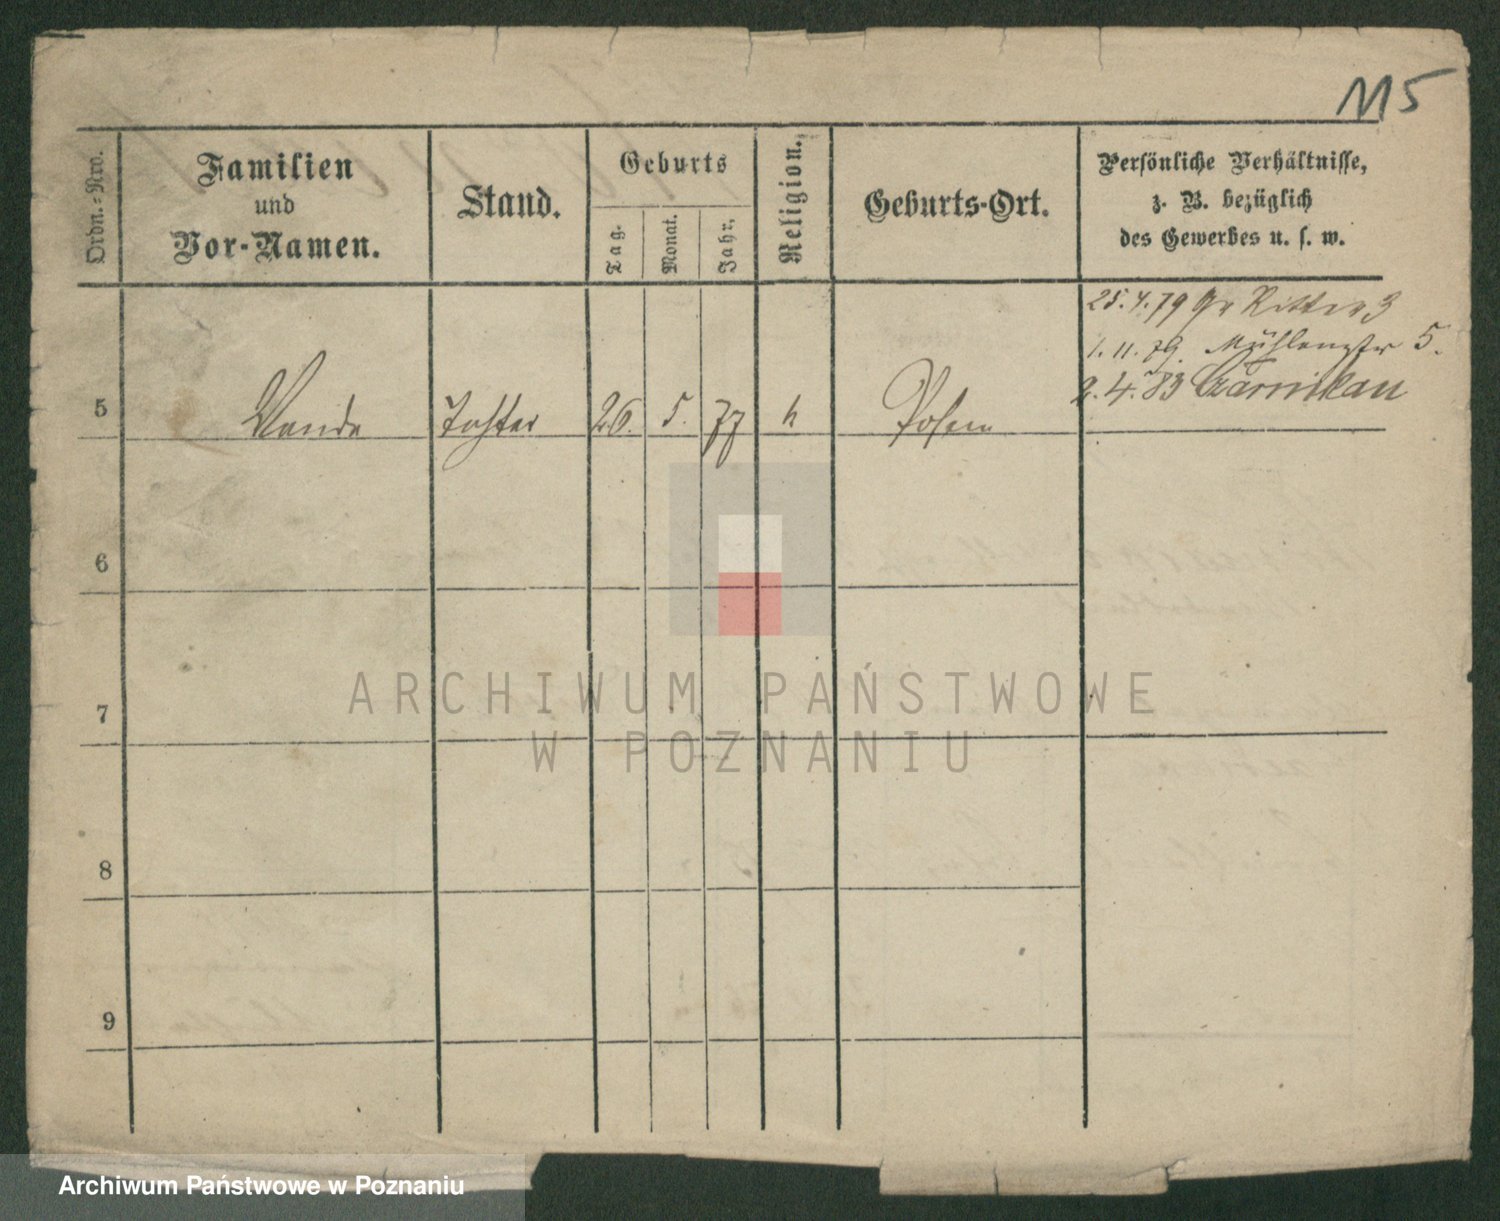 115
Ordn.-Nro.
Familien
und
Vor-Namen.
Stand.
Geburts
Tag.
Monat.
Jahr.
Religion.
Geburts-Ort.
Persönliche Verhältnisse,
z. B. bezüglich
des Gewerbes u. s. w.
25.4.79 Gr Ritter 3
1.11.79. Mühlenstr 5.
2.4.83 Czarnikau
5 Wanda Tochter 26. 5. 77 k Posen
6
7
8
9
ARCHIWUM PAŃSTWOWE
W POZNANIU
Archiwum Państwowe w Poznaniu